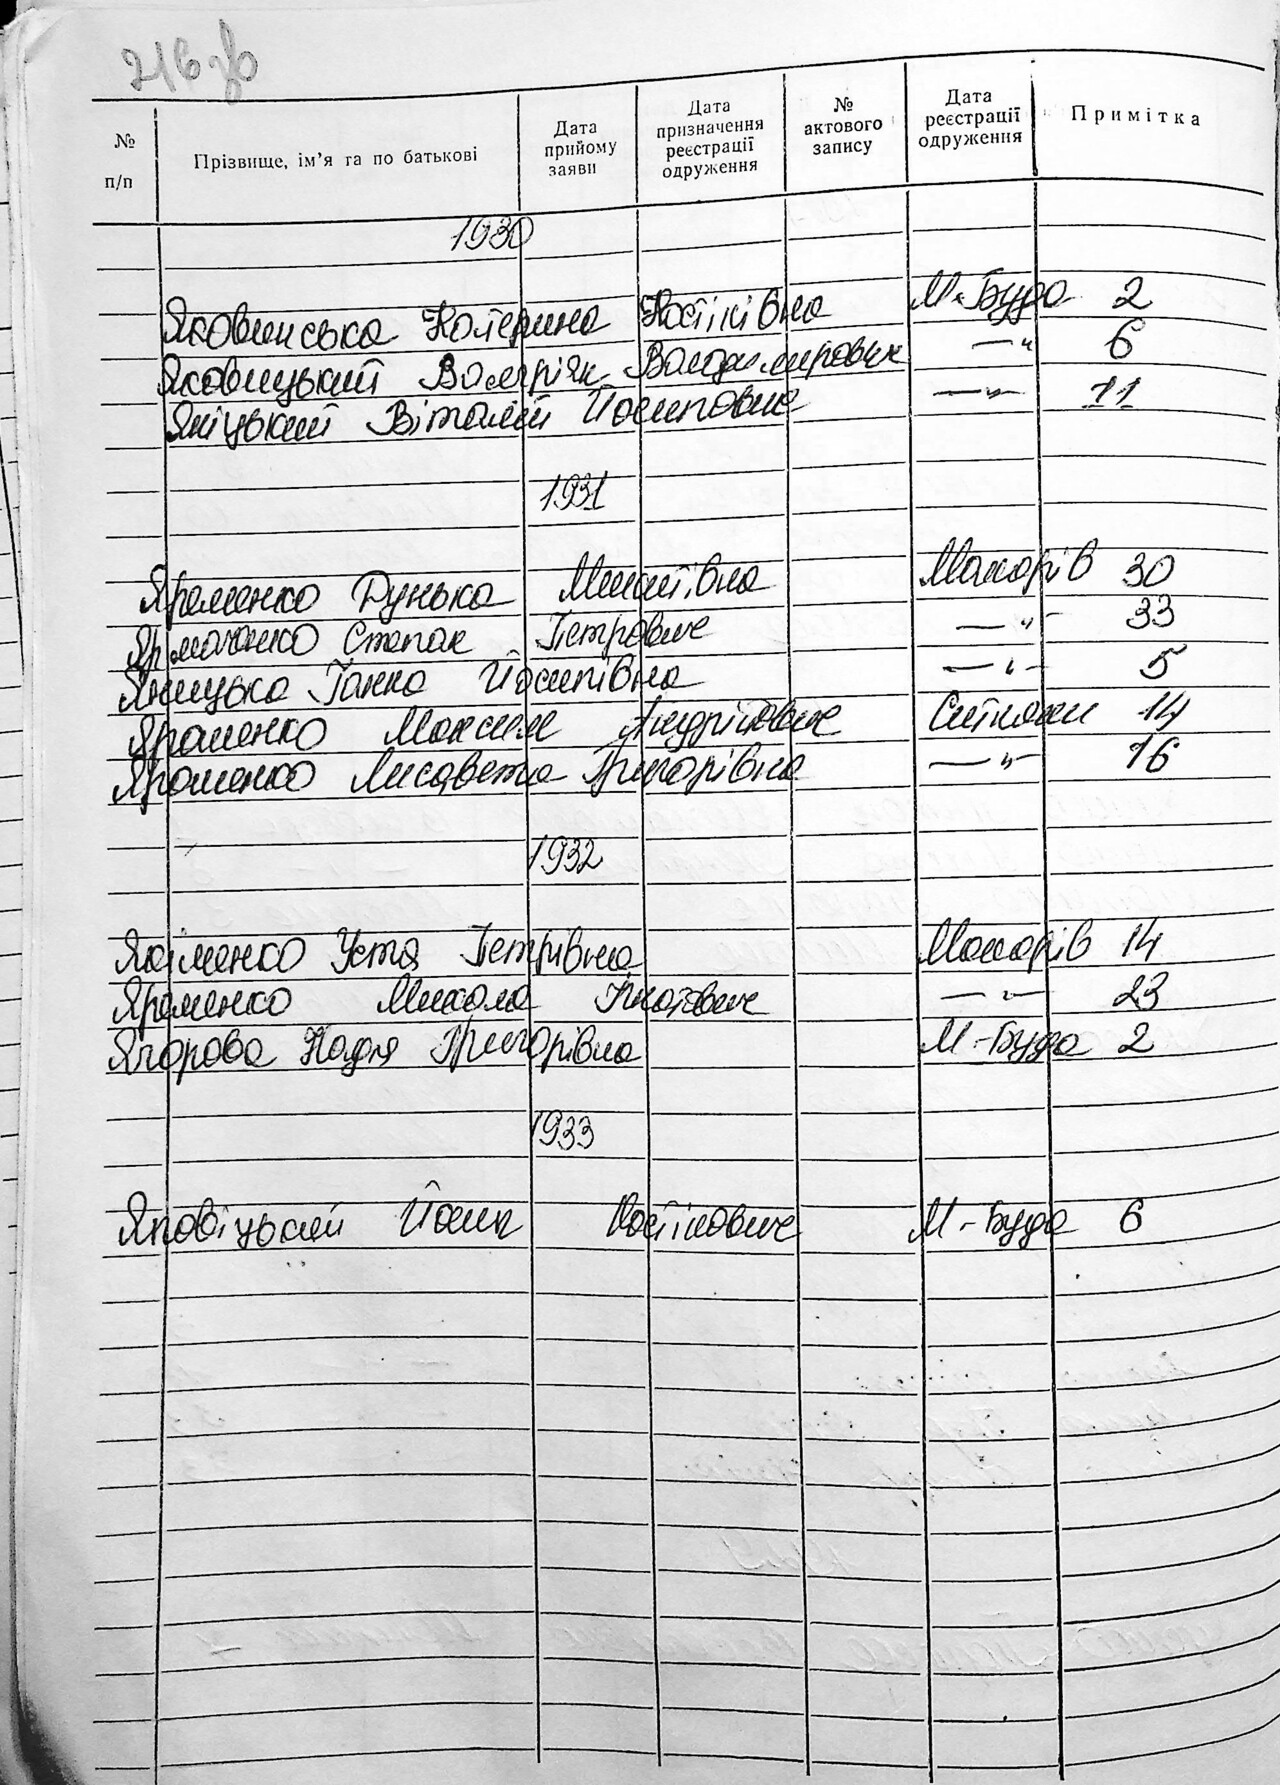 216 зв
№ п/п
Прізвище, ім'я та по батькові
Дата прийому заяви
Дата призначення реєстрації одруження
№ актового запису
Дата реєстрації одруження
Примітка
1930
Яковинська Катерина Костівна М-Буда 2
Яковицький Володимирович —"— 6
Яніцький Віталій Йосипович —"— 11
1931
Яременко Дунька Микитівна Макарів 30
Степан Петрович —"— 33
Яницька Ганна Йосипівна —"— 5
Яроменко Максим Андрійович Ситняки 14
Яроменко Лисавета Григорівна —"— 16
1932
Якименко Устя Петрівна Макарів 14
Яременко Микола Гнатович —"— 23
Ягорова Надя Григорівна М-Буда 2
1933
Йосип Костікович М-Буда 6